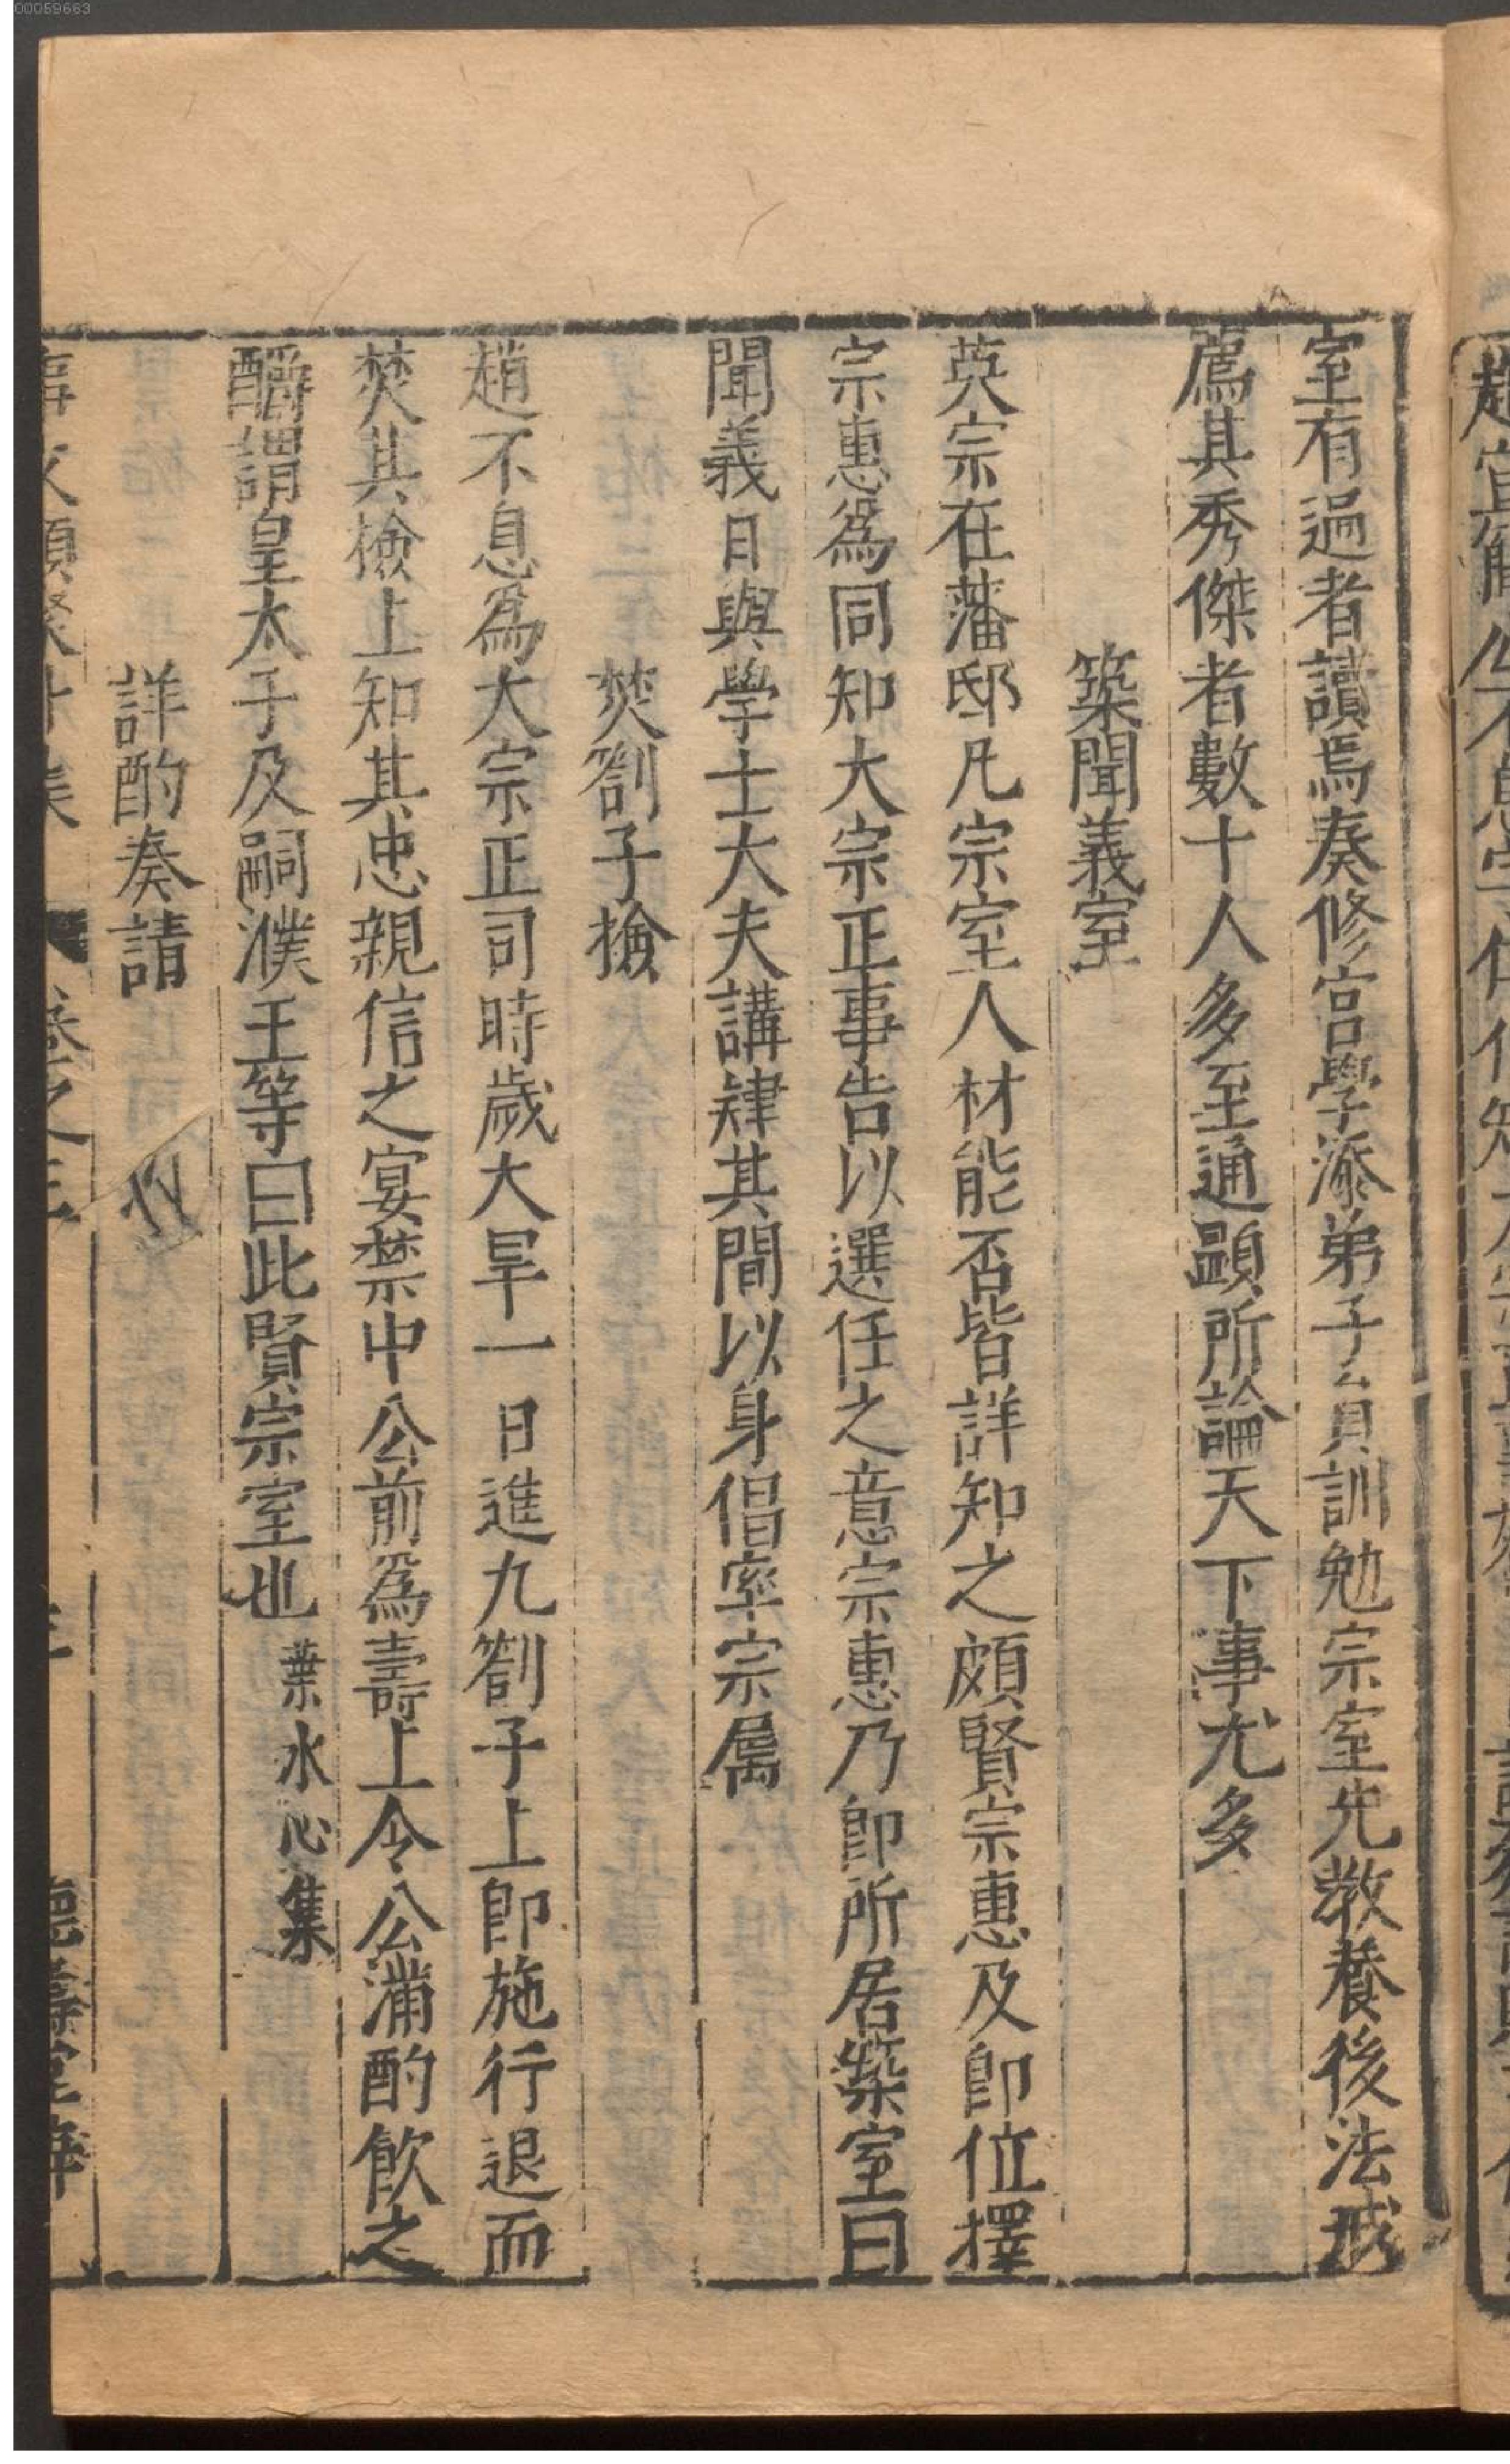 室有過者讀焉奏修宫學添弟子員訓勉宗室先教養後法或
薦其秀傑者數十人多至通顯所論天下事尤多
築聞義室
英宗在藩邸凡宗室人材能否皆詳知之頗賢宗惠及即位擇
宗惠爲同知大宗正事告以選任之意宗惠乃即所居築室曰
聞義日與學士大夫講肄其間以身倡率宗属
焚劄子撿
趙不息爲大宗正司時歲大旱一日進九劄子上即施行退而
焚其撿上知其忠親信之宴禁中公前爲壽上令公滿酌飲之
釂謂皇太子及嗣濮王等曰此賢宗室也葉水心集
詳酌奏請
德壽堂梓
00059663